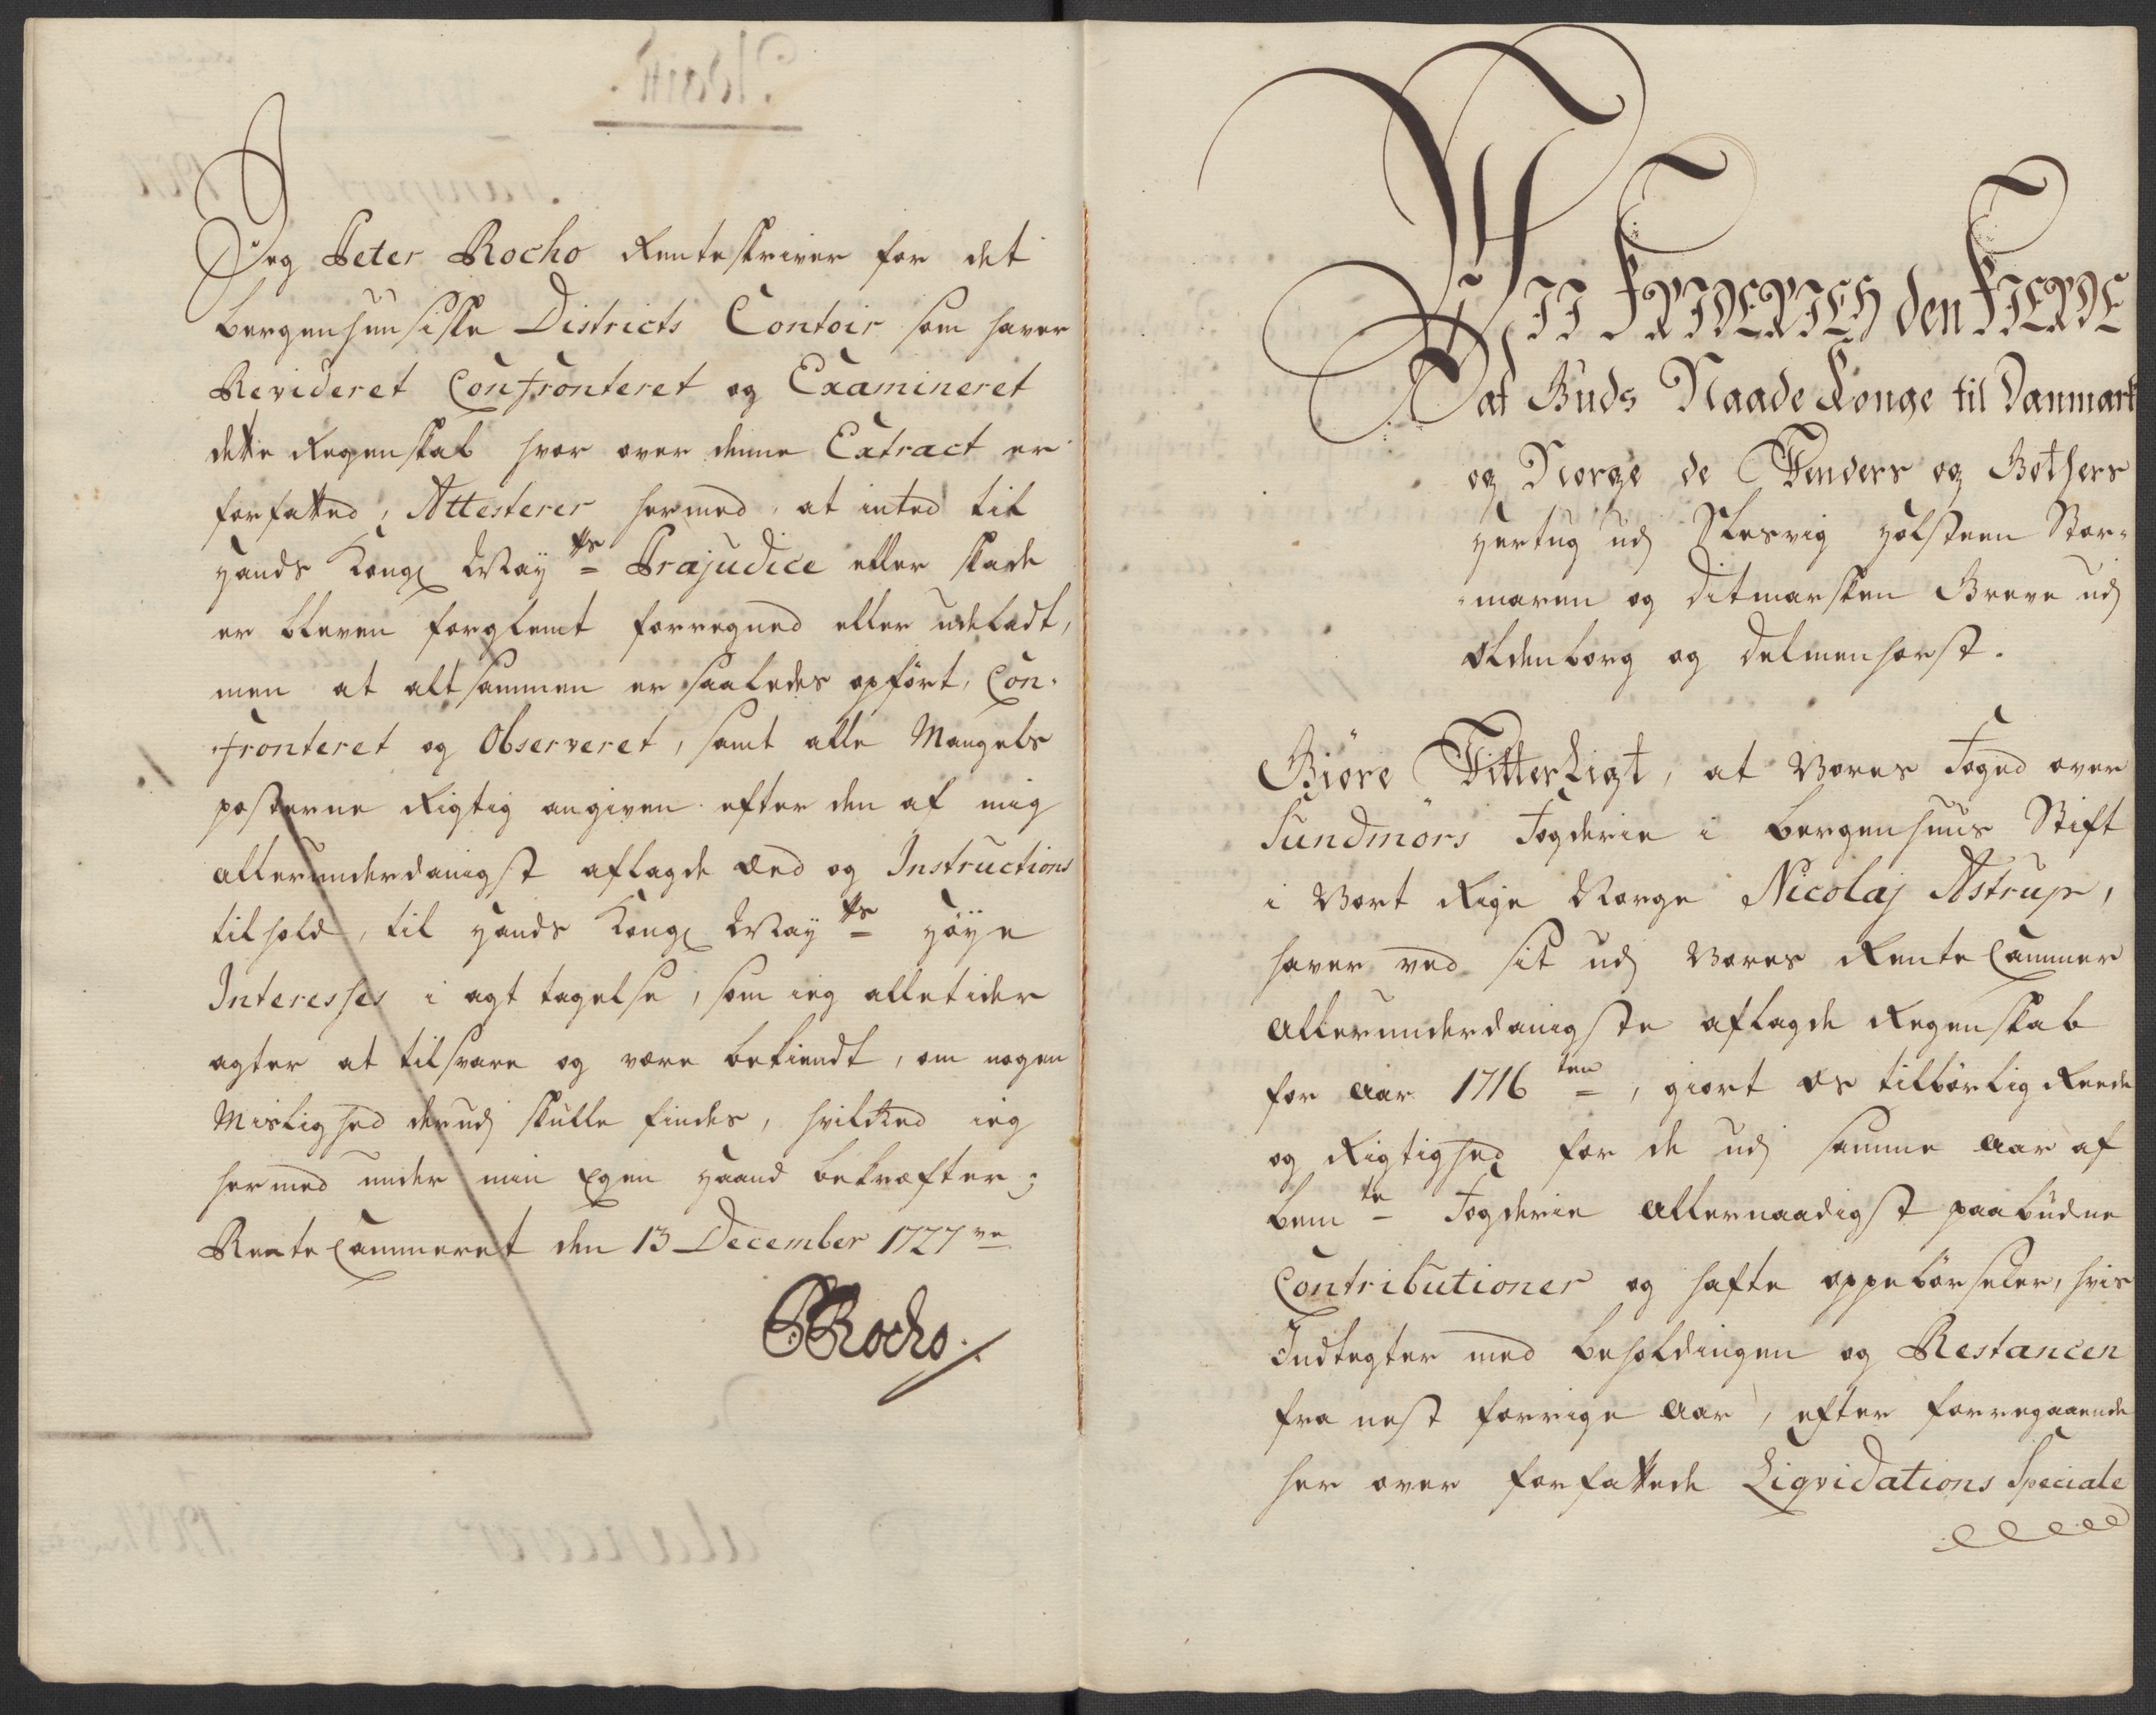 Jeg Peter Rocho Renteskriver for det
Bergenhuusiske Districts Contoir som haver
Revideret Confronteret og Examineret
dette Regenskab hvor over denne Extract er
forfatted, Attesterer hermed, at inted til
Hands Kongl May.ts Præjudice eller skade
er bleven forglemt forregned eller udeladt,
men at altsammen er saaledes opført, Con-
fronteret og Observeret, samt alle Mangels
posterne Rigtig angiven efter den af mig
allerunderdanigst aflagde Eed og Instructions
tilhold, til Hands Kongl May.ts Høye
Interesses i agt tagelse, som ieg alletider
agter at tilsvare og være bekiendt, om nogen
Mislighed derudj skulle findes, hvilked ieg
hermed under min Egen Haand bekræfter;
Rente Cammeret den 13 December 1727
PRocho.
WII FRIDERICH den FIERDE
af Guds Naade Konge til Danmark
og Norge de Venders og Gothers
Hertug udj Slesvig Holsteen Stor-
maren og Ditmarsken Greve udj
Oldenborg og Delmenhorst.
Giøre Vitterligt, at Vores Foged over
Sundmørs Fogderie i Bergenhuus Stift
i Vort Rige Norge Nicolaj Astrup,
haver ved sit udj Vores Rente Cammer
allerunderdanigste aflagde Regenskab
for Aar 1716ten, giort Os tilbørlig Reede
og Rigtighed for de udj samme Aar af
bemte Fogderie allernaadigst paabudne
Contributioner og hafte oppebørseler, hvis
Indtegter med beholdingen og Restancen
fra nest forrige Aar, efter forregaaende
her over forfattede Liqvidations Speciale